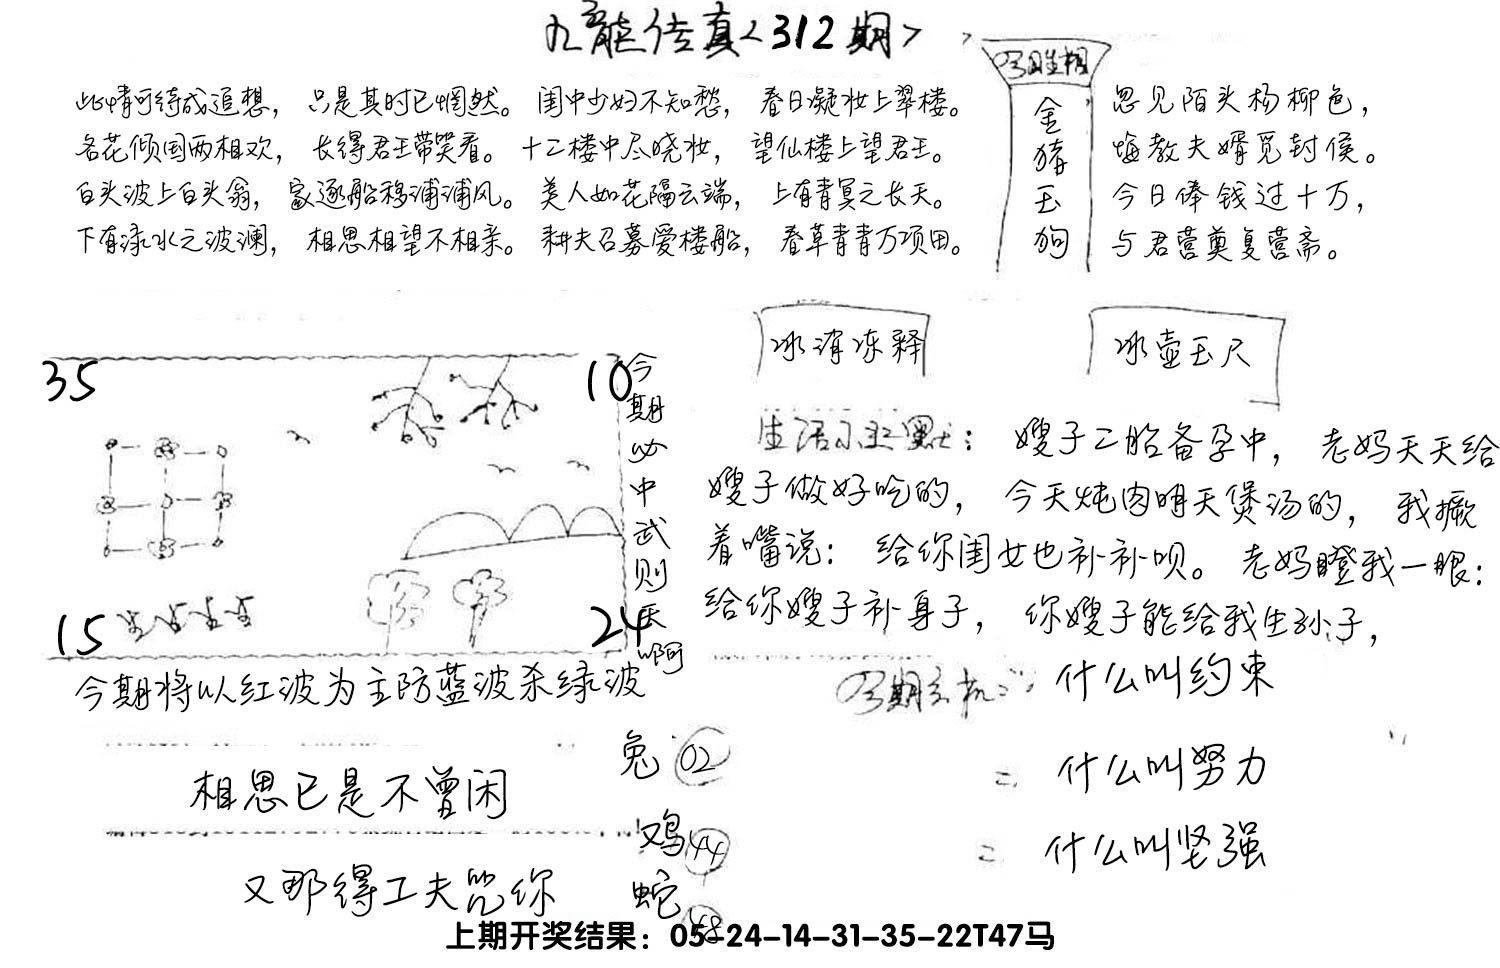 九龙传真<312期>
今日生相
金猪玉狗
此情可待成追想，只是其时已惘然。闺中少妇不知愁，春日凝妆上翠楼。
名花倾国两相欢，长得君王带笑看。十二楼中尽晓妆，望仙楼上望君王。
白头波上白头翁，家逐船移浦浦风。美人如花隔云端，上有青冥之长天。
下有渌水之波澜，相思相望不相亲。耕夫召募爱楼船，春草青青万项田。
忽见陌头杨柳色，
悔教夫婿觅封侯。
今日俸钱过十万，
与君营奠复营斋。
冰消冻释
冰壶玉尺
35
10
15
24
今期必中武则天啊
今期将以红波为主防蓝波杀绿波
生活小幽默：嫂子二胎备孕中，老妈天天给
嫂子做好吃的，今天炖肉明天煲汤的，我撅
着嘴说：给你闺女也补补呗。老妈瞪我一眼：
给你嫂子补身子，你嫂子能给我生孙子，
今期玄机
什么叫约束
二 什么叫努力
什么叫坚强
相思已是不曾闲
又那得工夫咒你
兔 02
鸡 44
蛇 48
上期开奖结果：05-24-14-31-35-22T47马